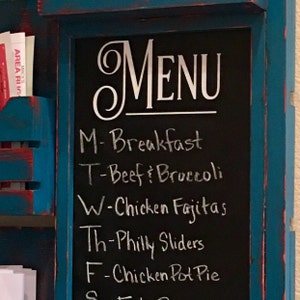 AREA RU
MENU
M-Breakfast
T-Beef & Broccoli
W-Chicken Fajitas
Th-Philly Sliders
F-Chicken Pot Pie